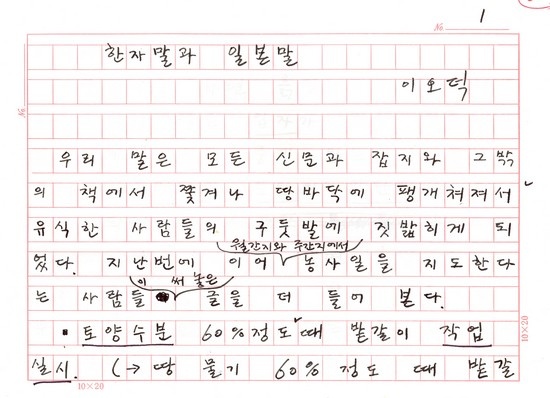 No. 1
한자말과 일본말
이오덕
우리 말은 모든 신문과 잡지와 그 밖
의 책에서 쫓겨나 땅바닥에 팽개쳐져서
유식한 사람들의 구둣발에 짓밟히게 되
었다. 지난번에 이어 월간지와 주간지에서 농사일을 지도한다
는 사람들이 써 놓은 글을 더 들어 본다.
▪ 토양수분 60%정도 때 밭갈이 작업
실시. (→ 땅 물기 60% 정도 때 밭갈
No.
10×20
10×20